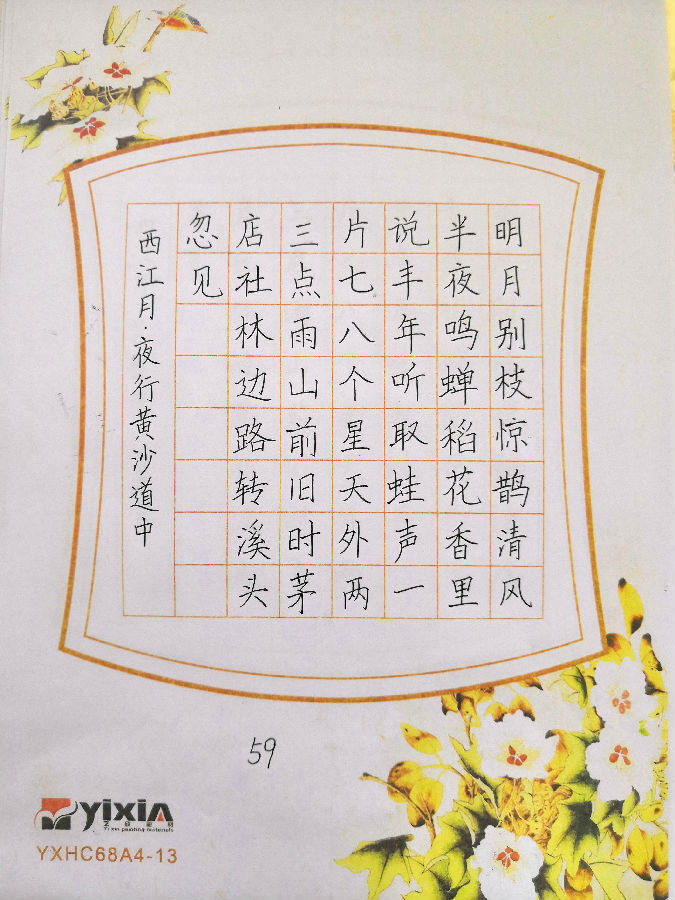 明月别枝惊鹊清风
半夜鸣蝉稻花香里
说丰年听取蛙声一
片七八个星天外两
三点雨山前旧时茅
店社林边路转溪头
忽见
西江月·夜行黄沙道中
59
yixin
Yi xin painting materials
YXHC68A4-13